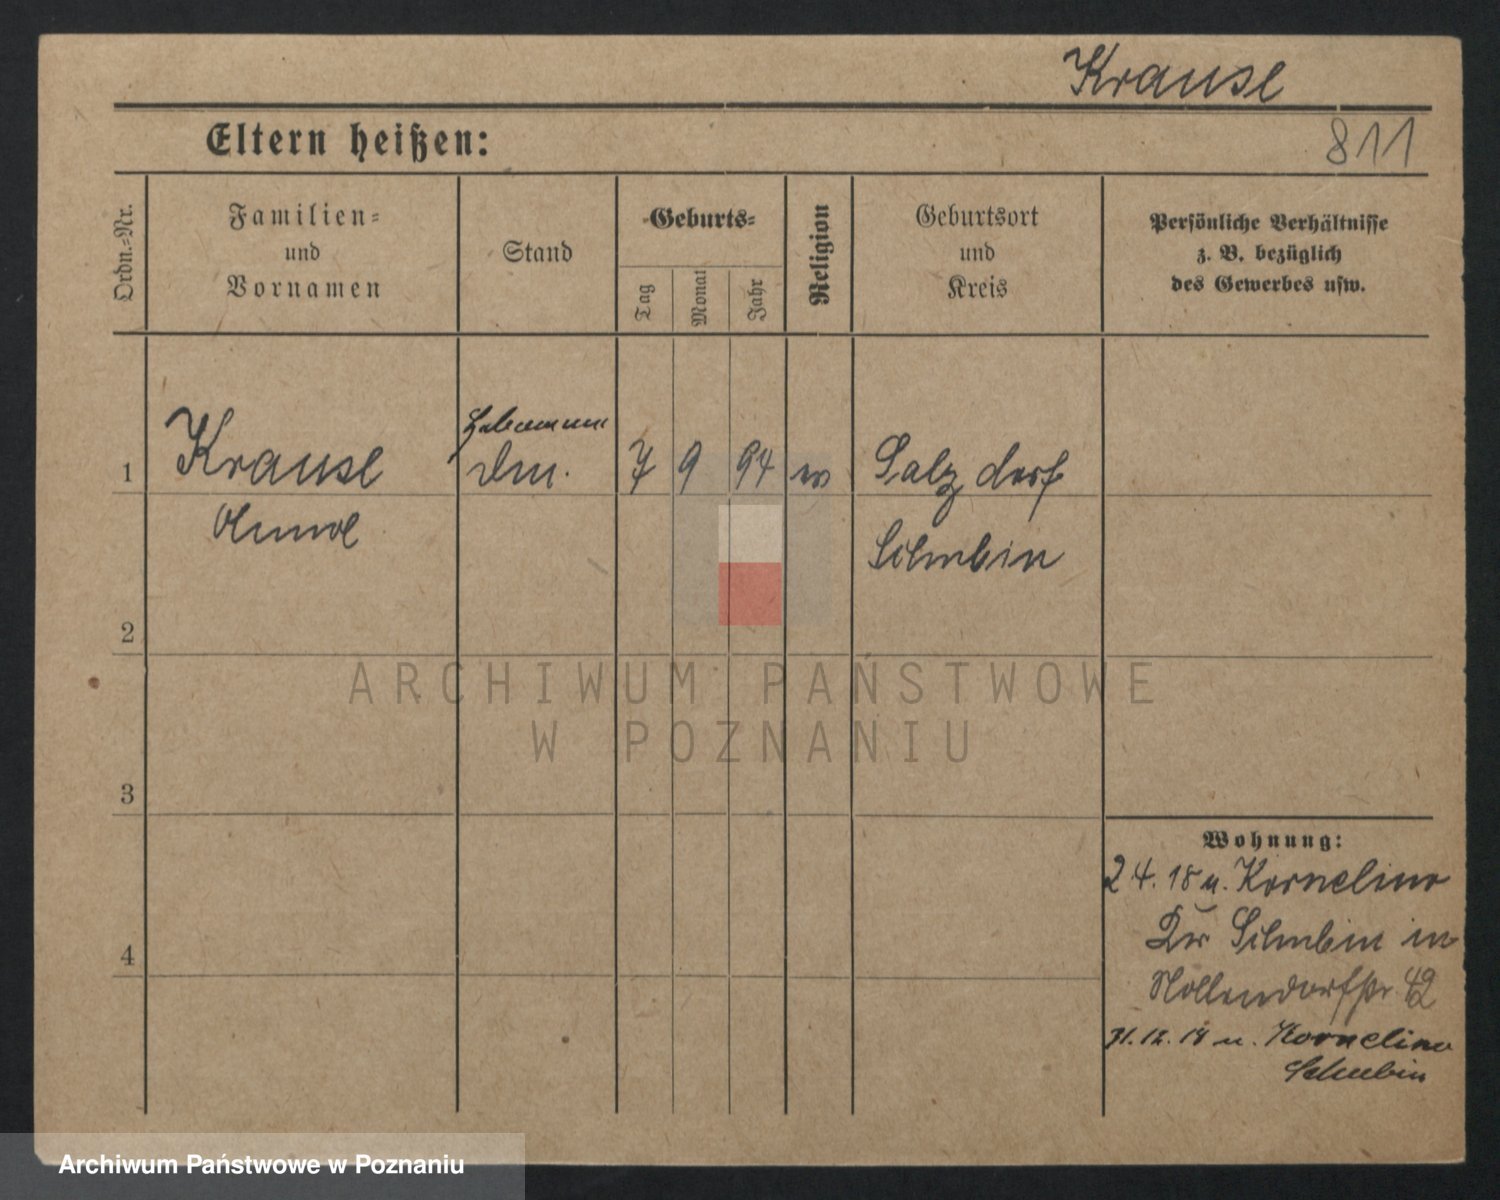 Krause
Eltern heißen:
811
Ordn.=Nr.
Familien=
und
Vornamen
Stand
Geburts=
Tag
Monat
Jahr
Religion
Geburtsort
und
Kreis
Persönliche Verhältnisse
z. B. bezüglich
des Gewerbes usw.
Hebamme
1
Krause
7
9
94
Salzdorf
Schubin
2
3
4
Wohnung:
2 4. 18 v. Kornelino
Kr Schubin in
Nollendorfstr. 42
31.12.18 n. Kornelino
Schubin
ARCHIWUM PAŃSTWOWE
W POZNANIU
Archiwum Państwowe w Poznaniu